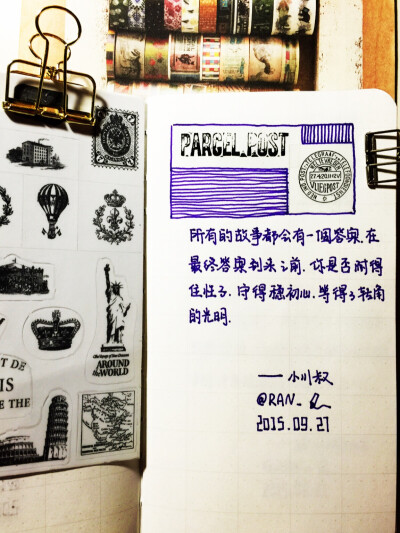 PARCEL.POST
VLIEGPOST
所有的故事都会有一個答案.在
最终答案到来之前.你是否耐得
住性子.守得穩初心.等得了转角
的光明.
——小川叔
@RAN_
2015.09.27
AROUND
THE WORLD
T DE
IS
E THE